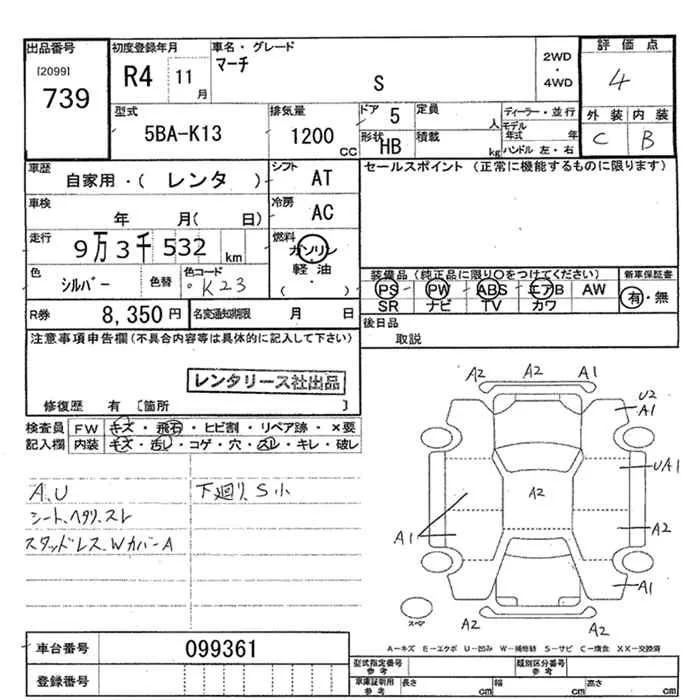 出品番号
[2099]
739
初度登録年月
R4 11月
車名・グレード
マーチ
S
2WD
・
4WD
評価点
4
外装 内装
C B
型式
5BA-K13
排気量
1200 CC
ドア 5
形状 HB
定員 人
積載 kg
ディーラー・並行
モデル年式 年
ハンドル 左・右
車歴
自家用・( レンタ )
シフト
AT
車検
年 月( 日)
冷房
AC
走行
9万3千532 km
燃料
ガソリン
・
軽油
( ・ )
色
シルバー
色替
色コード
K23
R券 8,350円
名変通知期限 月 日
セールスポイント (正常に機能するものに限ります)
装備品 (純正品に限り○をつけてください)
PS PW ABS エアB AW
SR ナビ TV カワ
新車保証書
有・無
後日品
取説
注意事項申告欄(不具合内容等は具体的に記入して下さい)
レンタリース社出品
修復歴 有 〔箇所 〕
検査員記入欄
FW キズ・飛石・ヒビ割・リペア跡・×要
内装 キズ・汚レ・コゲ・穴・スレ・キレ・破レ
A、U
下廻り、S小
シート、ヘタリ、スレ
スタッドレス、WカバーA
A2 A2 A1
U2
A1
UA1
A2
A1
A2
A1
A2 A2
スペア
A-キズ E-エクボ U-凹み W-補修跡 S-サビ C-腐食 XX-交換済
車台番号 099361
登録番号
型式指定番号 参考
類別区分番号 参考
車庫証明用 参考
長さ cm 幅 cm 高さ cm